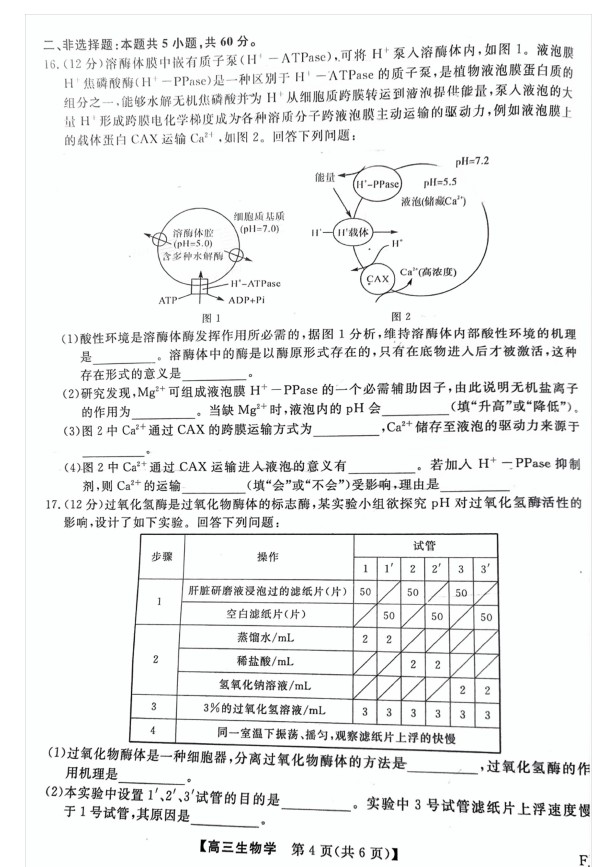 二、非选择题:本题共5小题,共60分。
16.(12分)溶酶体膜中嵌有质子泵(H⁺-ATPase),可将H⁺泵入溶酶体内,如图1。液泡膜
H⁺焦磷酸酶(H⁺-PPase)是一种区别于H⁺-ATPase的质子泵,是植物液泡膜蛋白质的
组分之一,能够水解无机焦磷酸并为H⁺从细胞质跨膜转运到液泡提供能量,泵入液泡的大
量H⁺形成跨膜电化学梯度成为各种溶质分子跨液泡膜主动运输的驱动力,例如液泡膜上
的载体蛋白CAX运输Ca²⁺,如图2。回答下列问题:
pH=7.2
能量
H⁺-PPase
pH=5.5
液泡(储藏Ca²⁺)
细胞质基质
(pH=7.0)
溶酶体腔
(pH=5.0)
含多种水解酶
H⁺
H⁺载体
H⁺
CAX
Ca²⁺(高浓度)
H⁺-ATPase
ATP
ADP+Pi
图1
图2
(1)酸性环境是溶酶体酶发挥作用所必需的,据图1分析,维持溶酶体内部酸性环境的机理
是________。溶酶体中的酶是以酶原形式存在的,只有在底物进入后才被激活,这种
存在形式的意义是________。
(2)研究发现,Mg²⁺可组成液泡膜H⁺-PPase的一个必需辅助因子,由此说明无机盐离子
的作用为________。当缺Mg²⁺时,液泡内的pH会________(填“升高”或“降低”)。
(3)图2中Ca²⁺通过CAX的跨膜运输方式为________,Ca²⁺储存至液泡的驱动力来源于
________。
(4)图2中Ca²⁺通过CAX运输进入液泡的意义有________。若加入H⁺-PPase抑制
剂,则Ca²⁺的运输________(填“会”或“不会”)受影响,理由是________
17.(12分)过氧化氢酶是过氧化物酶体的标志酶,某实验小组欲探究pH对过氧化氢酶活性的
影响,设计了如下实验。回答下列问题:
步骤 操作 试管
1 1′ 2 2′ 3 3′
1 肝脏研磨液浸泡过的滤纸片(片) 50 50 50
空白滤纸片(片) 50 50 50
2 蒸馏水/mL 2 2
稀盐酸/mL 2 2
氢氧化钠溶液/mL 2 2
3 3%的过氧化氢溶液/mL 3 3 3 3 3 3
4 同一室温下振荡、摇匀,观察滤纸片上浮的快慢
(1)过氧化物酶体是一种细胞器,分离过氧化物酶体的方法是________,过氧化氢酶的作
用机理是________。
(2)本实验中设置1′、2′、3′试管的目的是________。实验中3号试管滤纸片上浮速度慢
于1号试管,其原因是________。
【高三生物学 第4页(共6页)】
F.